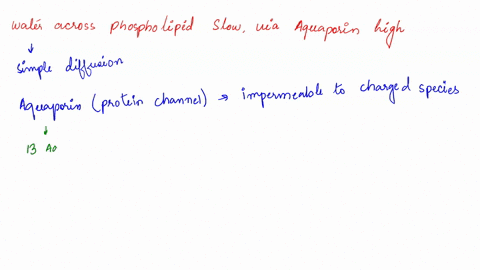 water across phospholipid slow, via Aquaporin high
simple diffusion
Aquaporin (protein channel) → impermeable to charged species
13 Aq